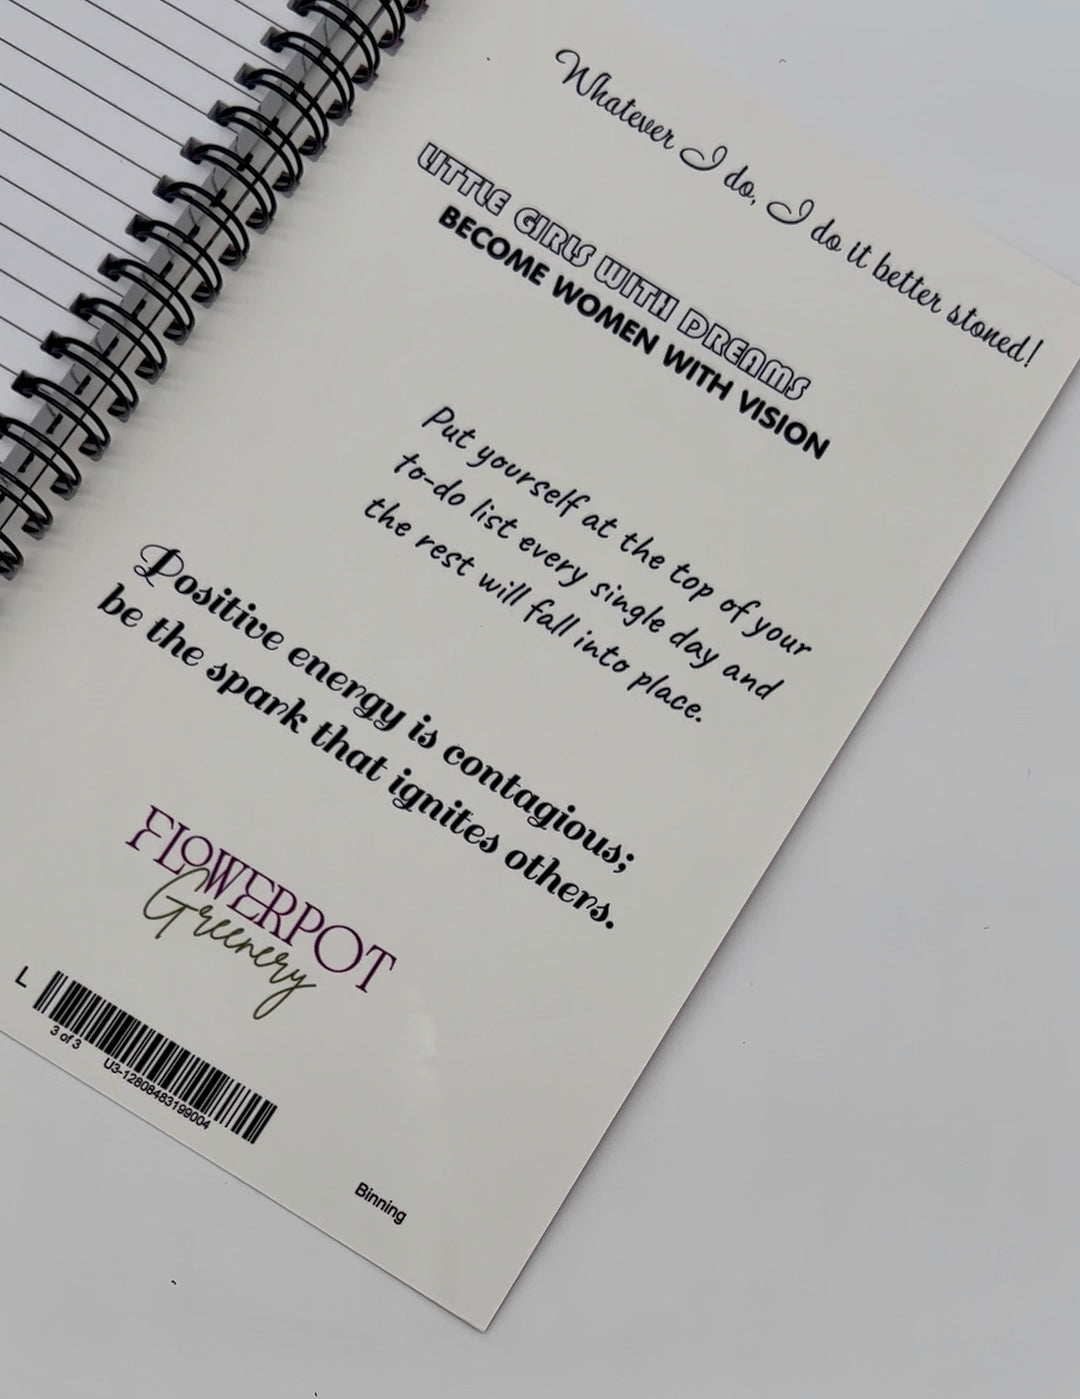 Whatever I do, I do it better stoned!
LITTLE GIRLS WITH DREAMS
BECOME WOMEN WITH VISION
Put yourself at the top of your
to-do list every single day and
the rest will fall into place.
Positive energy is contagious;
be the spark that ignites others.
FLOWERPOT
Greenery
L
3 of 3
U3-12808483199004
Binning